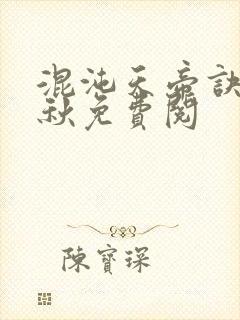 混沌天帝訣
秋免費閱
陳寶琛